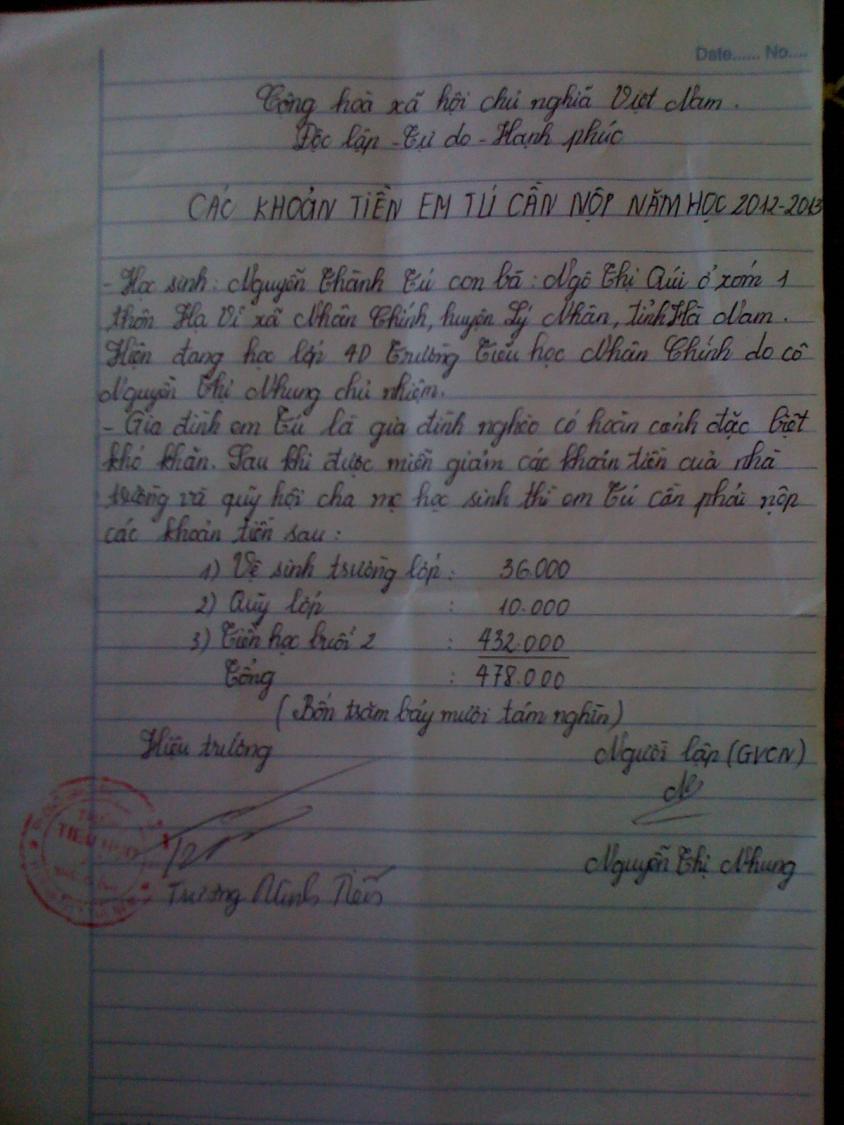 Date...... No....
Cộng hoà xã hội chủ nghĩa Việt Nam.
Độc lập - Tự do - Hạnh phúc
CÁC KHOẢN TIỀN EM TÚ CẦN NỘP NĂM HỌC 2012-2013
- Học sinh: Nguyễn Thành Tú con bà: Ngô Thị Qúi ở xóm 1
thôn Hạ Vĩ xã Nhân Chính, huyện Lý Nhân, tỉnh Hà Nam.
Hiện đang học lớp 4D Trường Tiểu học Nhân Chính do cô
Nguyễn Thị Nhung chủ nhiệm.
- Gia đình em Tú là gia đình nghèo có hoàn cảnh đặc biệt
khó khăn. Sau khi được miễn giảm các khoản tiền của nhà
trường và quỹ hội cha mẹ học sinh thì em Tú cần phải nộp
các khoản tiền sau:
1) Vệ sinh trường lớp: 36.000
2) Quỹ lớp : 10.000
3) Tiền học buổi 2 : 432.000
Tổng : 478.000
(Bốn trăm bảy mươi tám nghìn)
Hiệu trưởng
Người lập (GVCN)
Nguyễn Thị Nhung
TIỂU HỌC
Trương Minh